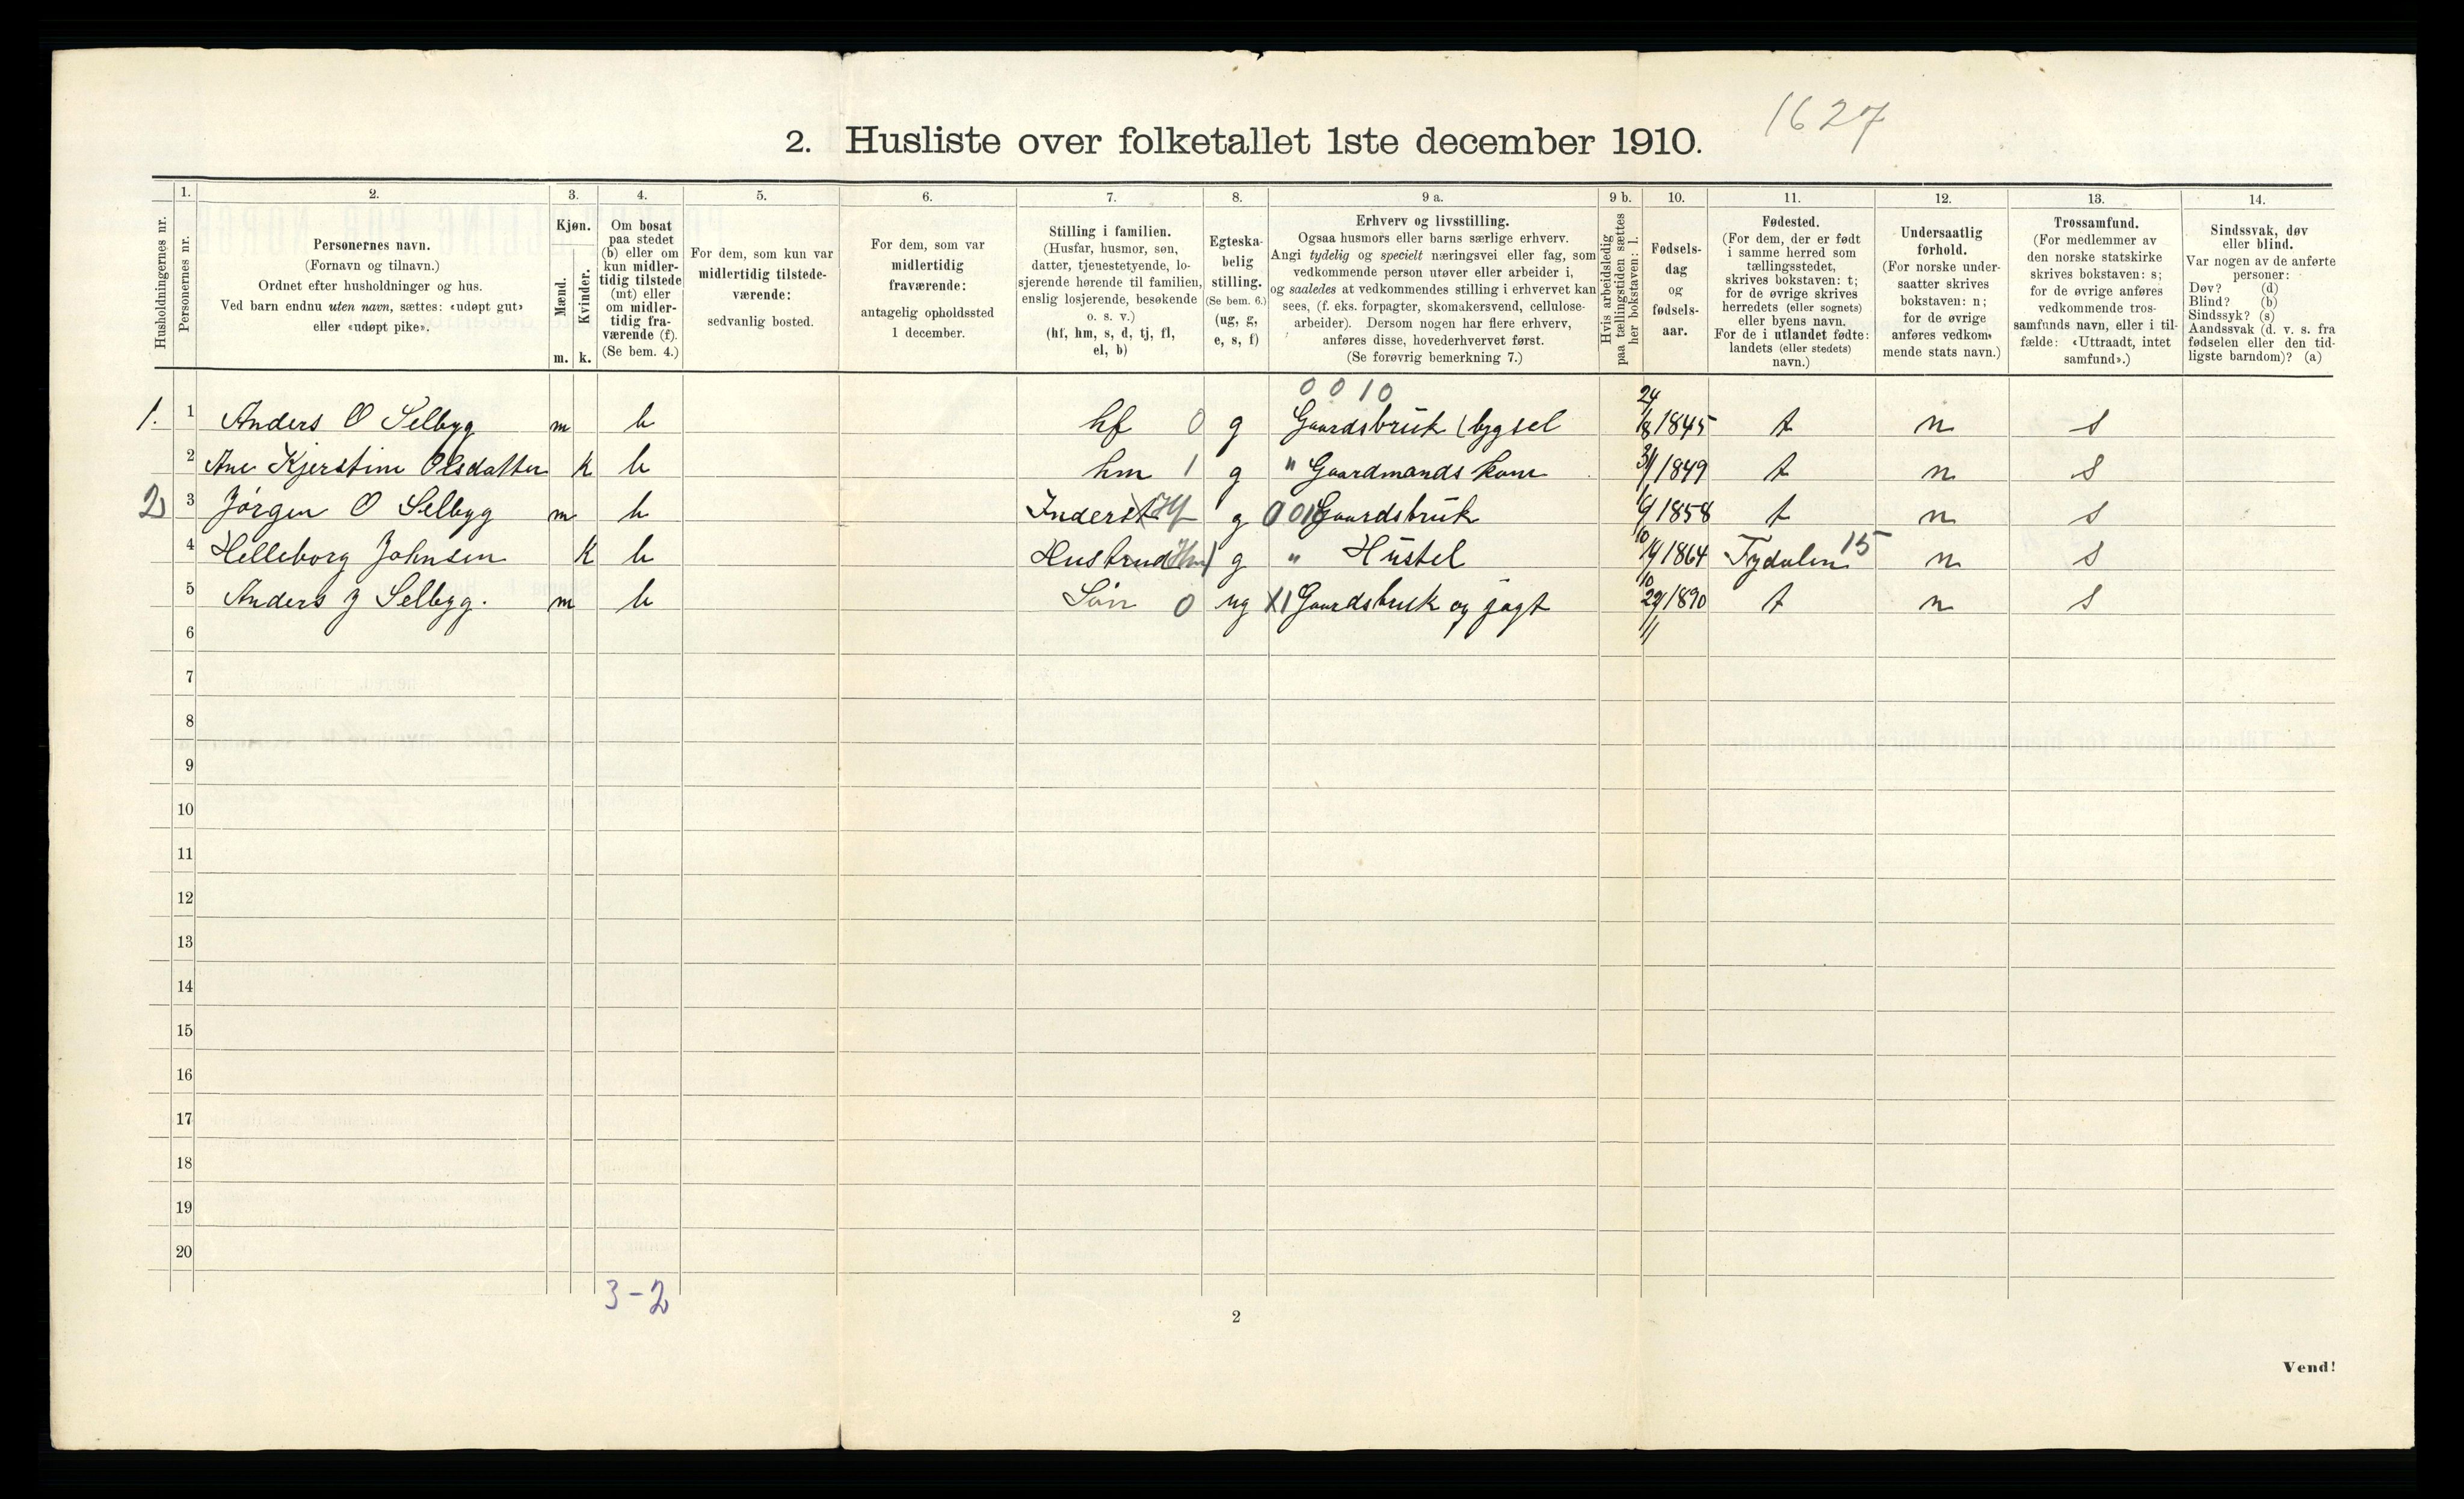 1627
2. Husliste over folketallet 1ste december 1910.
1. 2. 3. 4. 5. 6. 7. 8. 9 a. 9 b. 10. 11. 12. 13. 14.
Husholdningernes nr.
Personernes nr.
Personernes navn.
(Fornavn og tilnavn.)
Ordnet efter husholdninger og hus.
Ved barn endnu uten navn, sættes: «udøpt gut»
eller «udøpt pike».
Kjøn.
Mænd.
Kvinder.
m. k.
Om bosat
paa stedet
(b) eller om
kun midler-
tidig tilstede
(mt) eller
om midler-
tidig fra-
værende (f).
(Se bem. 4.)
For dem, som kun var
midlertidig tilstede-
værende:
sedvanlig bosted.
For dem, som var
midlertidig
fraværende:
antagelig opholdssted
1 december.
Stilling i familien.
(Husfar, husmor, søn,
datter, tjenestetyende, lo-
sjerende hørende til familien,
enslig losjerende, besøkende
o. s. v.)
(hf, hm, s, d, tj, fl,
el, b)
Egteska-
belig
stilling.
(Se bem. 6.)
(ug, g,
e, s, f)
Erhverv og livsstilling.
Ogsaa husmors eller barns særlige erhverv.
Angi tydelig og specielt næringsvei eller fag, som
vedkommende person utøver eller arbeider i,
og saaledes at vedkommendes stilling i erhvervet kan
sees, (f. eks. forpagter, skomakersvend, cellulose-
arbeider). Dersom nogen har flere erhverv,
anføres disse, hovederhvervet først.
(Se forøvrig bemerkning 7.)
Hvis arbeidsledig
paa tællingstiden sættes
her bokstaven: l.
Fødsels-
dag
og
fødsels-
aar.
Fødested.
(For dem, der er født
i samme herred som
tællingsstedet,
skrives bokstaven: t;
for de øvrige skrives
herredets (eller sognets)
eller byens navn.
For de i utlandet fødte:
landets (eller stedets)
navn.)
Undersaatlig
forhold.
(For norske under-
saatter skrives
bokstaven: n;
for de øvrige
anføres vedkom-
mende stats navn.)
Trossamfund.
(For medlemmer av
den norske statskirke
skrives bokstaven: s;
for de øvrige anføres
vedkommende tros-
samfunds navn, eller i til-
fælde: «Uttraadt, intet
samfund».)
Sindssvak, døv
eller blind.
Var nogen av de anførte
personer:
Døv? (d)
Blind? (b)
Sindssyk? (s)
Aandssvak (d. v. s. fra
fødselen eller den tid-
ligste barndom)? (a)
0 0 10
1. 1 Anders O Selbyg m b hf 0 g Gaardsbruk (bygsel 24/8 1845 t n s
2 Ane Kjerstine Olsdatter k b hm 1 g " Gaardmands kone 1849 t n s
2) 3 Jørgen O Selbyg m b Inderst Hf g 0 010 Gaardsbruk 1858 t n s
4 Helleborg Johnsen k b Hustrud Hm g " Hustel 14/10 1864 Tydalen 15 n s
5 Anders J Selbyg. m b Søn 0 ug X1 Gaardsbruk og jagt 29/11 1890 t n s
6
7
8
9
10
11
12
13
14
15
16
17
18
19
20
3-2
2
Vend!